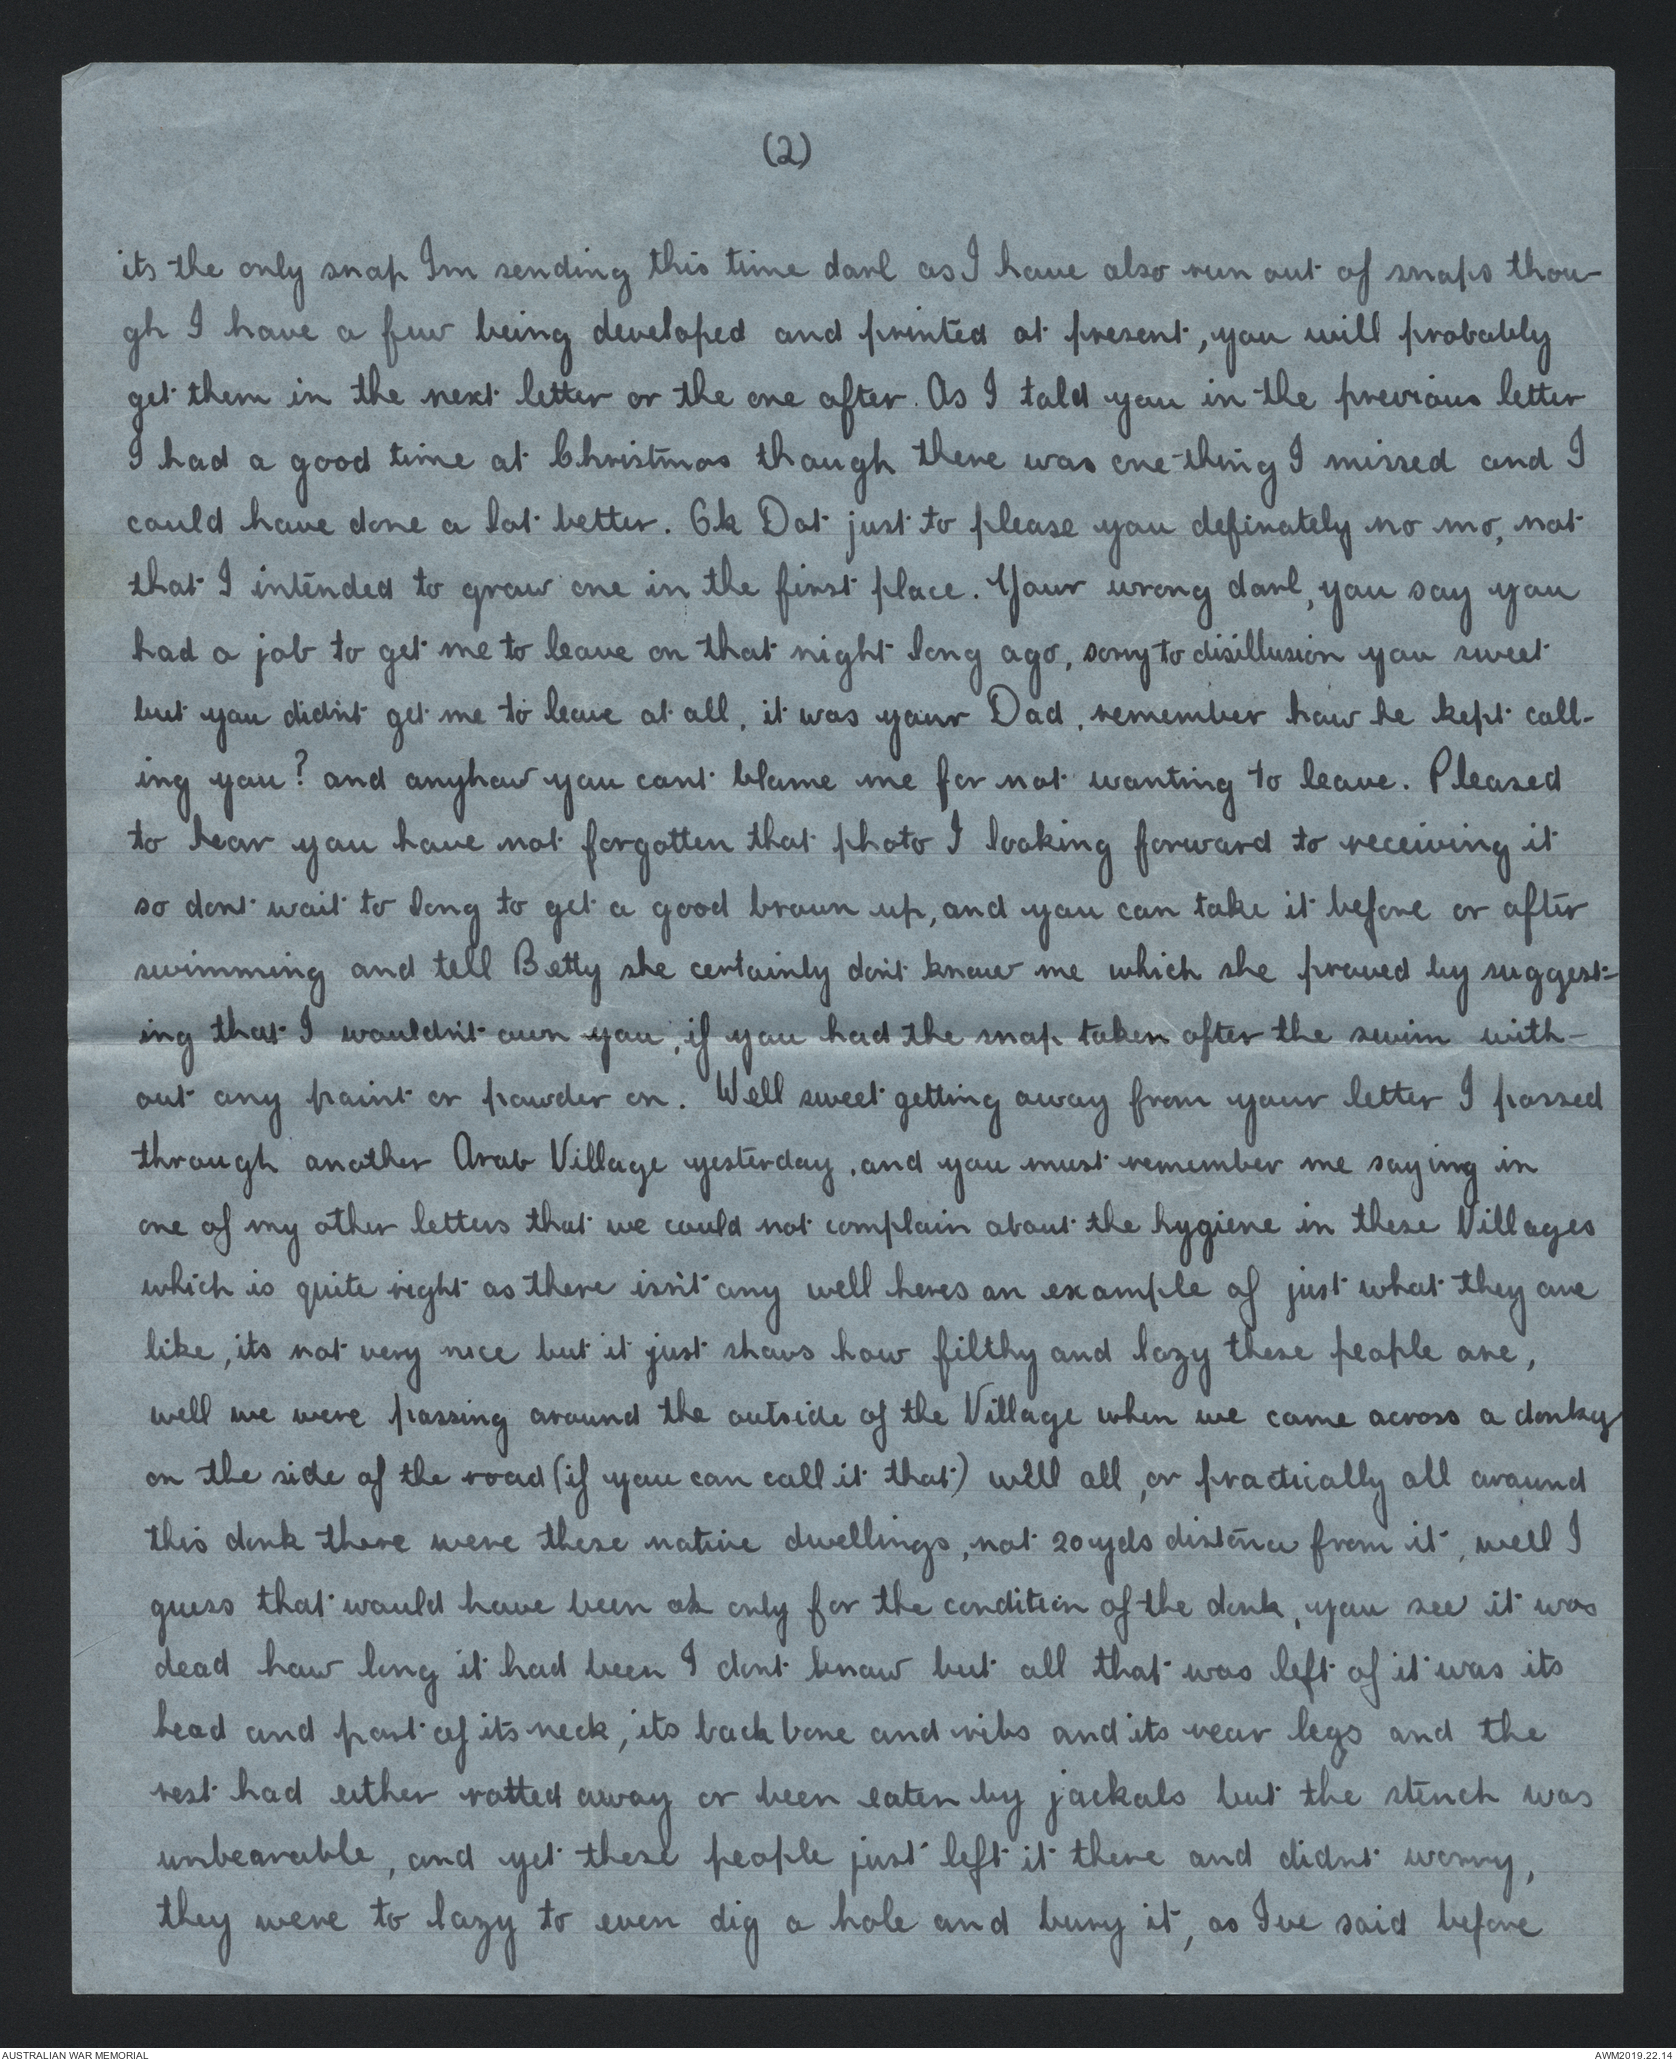 (2)
its the only snap Im sending this time darl as I have also run out of snaps thou-
gh I have a few being developed and printed at present, you will probably
get them in the next letter or the one after. As I told you in the previous letter
I had a good time at Christmas though there was one thing I missed and I
could have done a lot better. Ok Dot just to please you definately no mo, not
that I intended to grow one in the first place. Your wrong darl, you say you
had a job to get me to leave on that night long ago, sorry to disillusion you sweet
but you didn't get me to leave at all, it was your Dad, remember how he kept call-
ing you? and anyhow you cant blame me for not wanting to leave. Pleased
to hear you have not forgotten that photo I looking forward to receiving it
so dont wait to long to get a good brown up, and you can take it before or after
swimming and tell Betty she certainly don't know me which she proved by suggest-
ing that I wouldn't own you, if you had the snap taken after the swim with-
out any paint or powder on. Well sweet getting away from your letter I passed
through another Arab Village yesterday, and you must remember me saying in
one of my other letters that we could not complain about the hygiene in these Villages
which is quite right as there isn't any well heres an example of just what they are
like, its not very nice but it just shows how filthy and lazy these people are,
well we were passing around the outside of the Village when we came across a donky
on the side of the road (if you can call it that) well all, or practically all around
this donk there were these native dwellings, not 20 yds distance from it, well I
guess that would have been ok only for the condition of the donk, you see it was
dead how long it had been I dont know but all that was left of it was its
head and part of its neck, its back bone and ribs and its rear legs and the
rest had either rotted away or been eaten by jackals but the stench was
unbearable, and yet these people just left it there and didnt worry,
they were to lazy to even dig a hole and bury it, as Ive said before
AUSTRALIAN WAR MEMORIAL
AWM2019.22.14